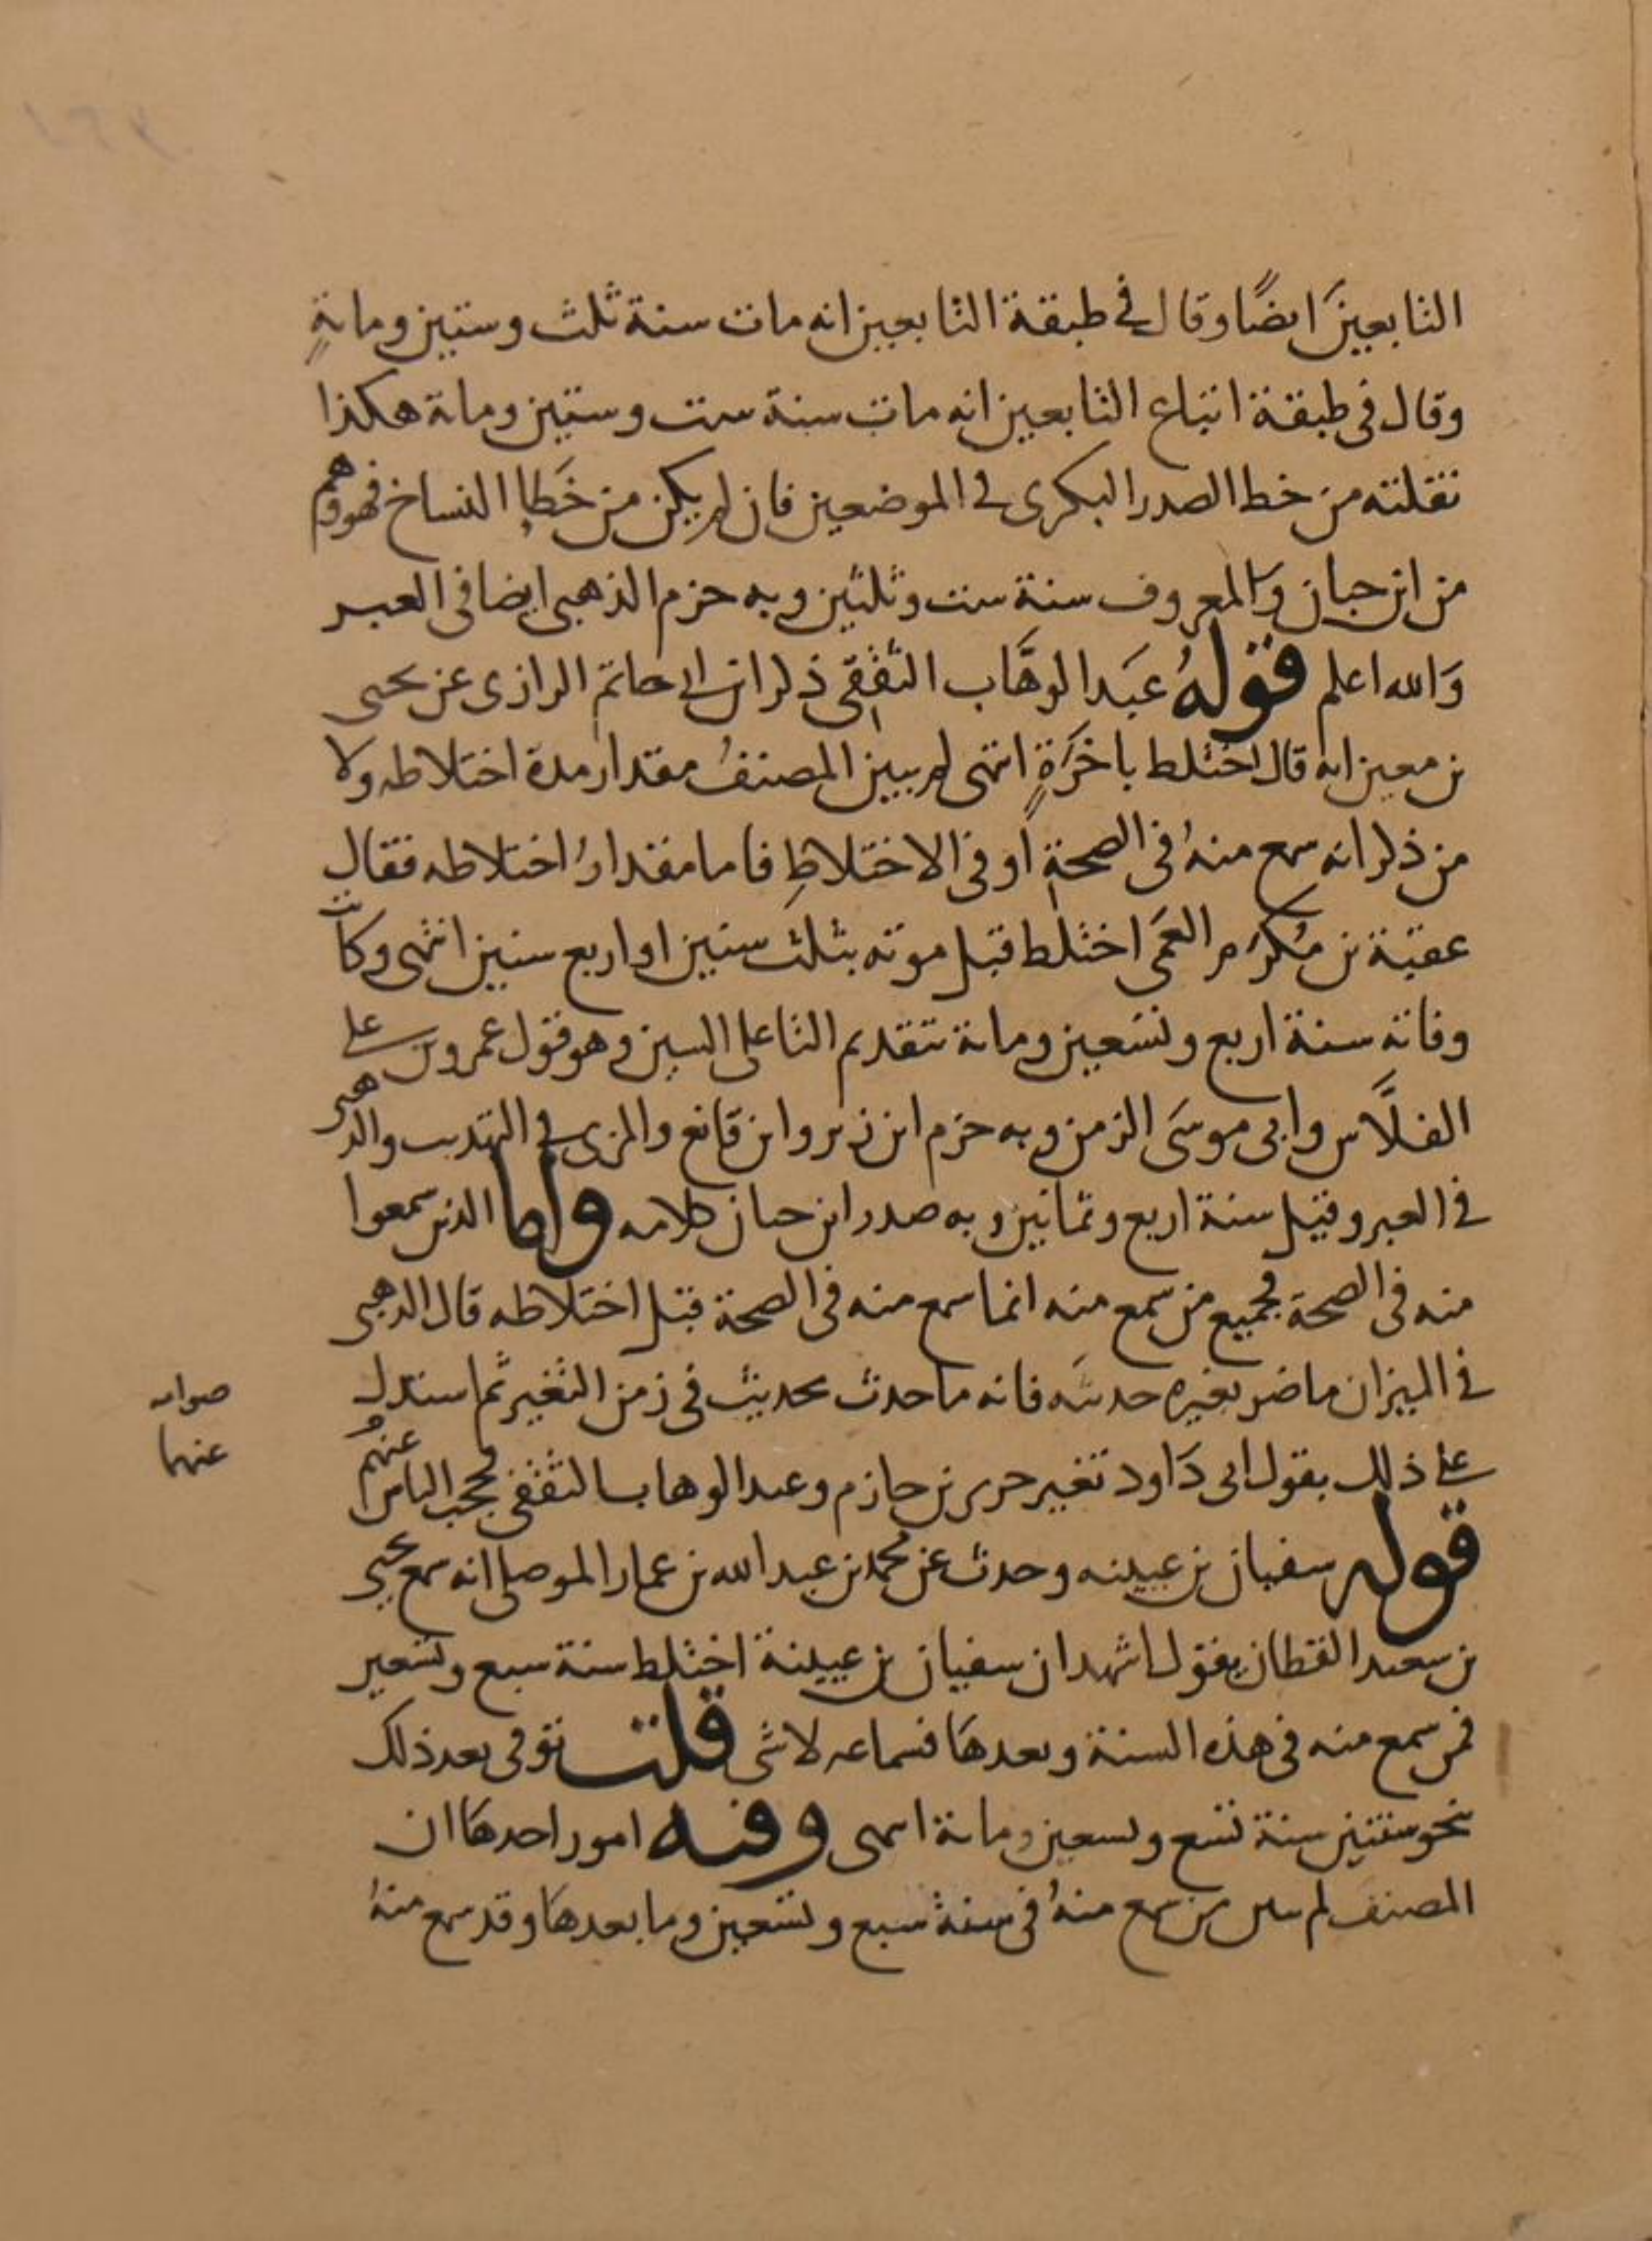 التابعينَ ايضًا وقال في طبقة التابعين انه مات سنة ثلث وستين ومائةٍ
وقال في طبقة اتباع التابعين انه مات سنة ست وستين ومائة هكذا
نقلته من خط الصدر البكرى في الموضعين فان لم يكن من خَطإ النساخ فهو وهم
من ابن حبان والمعروف سنة ست وثلثين وبه جزم الذهبى ايضا فى العبر
وَالله اعلم قولهُ عبَد الوهَّاب الثقفِى ذكر ابن ابى حاتم الرازى عن يحيى
بن معين انه قال اختلط باخَرَةٍ انتهى لم يبين المصنفُ مقدار مدة اختلاطه ولا
من ذكر انه سمع منهُ فى الصحةِ او فى الاختلاطِ فاما مقدارُ اختلاطه فقال
عقبة بن مُكرَم العَمى اختلط قبل موته بثلث سنين او اربع سنين انتهى وكانت
وفاته سنة اربع وتسَعين ومائة بتقديم التا على السين وهو قول عمرو بن على
الفلَّاس وابى موسَى الزمن وبه جزم ابن زبر وابن قانع والمزى في التهذيب والذهبى
في العبر وقيل سنة اربع وثمانين وبه صدر ابن حبان كلامه واما الذين سمعوا
منه فى الصحة فجميع من سمع منه انما سمع منه فى الصحة قبل اختلاطه قال الذهبى
في الميزان ما ضر تغيره حديثَه فانه ما حدث بحديث فى زمن التغير ثم استدل
على ذلك بقول ابى دَاود تغير جرير بن حازم وعبد الوهاب الثقفى فحجب الناس عنهُم
صوابه
عنهما
قوله سفيان بن عيينه وحدث عن محمد بن عبد الله بن عمار الموصلى انه سمع يحيى
بن سعيد القطان يقول اشهد ان سفيان بن عيينة اختلط سنة سبع وتسَعين
فمن سمع منه فى هذه السنة وبعدهَا فسماعه لا شى قلت توفى بعد ذلك
بنحو سنتين سنة تسَع وتسعين ومائة انتهى وفيه امور احدهَا ان
المصنف لم يبين من سمع منهُ فى سنة سبع وتسَعين وما بعدهَا وقد سمع منهُ